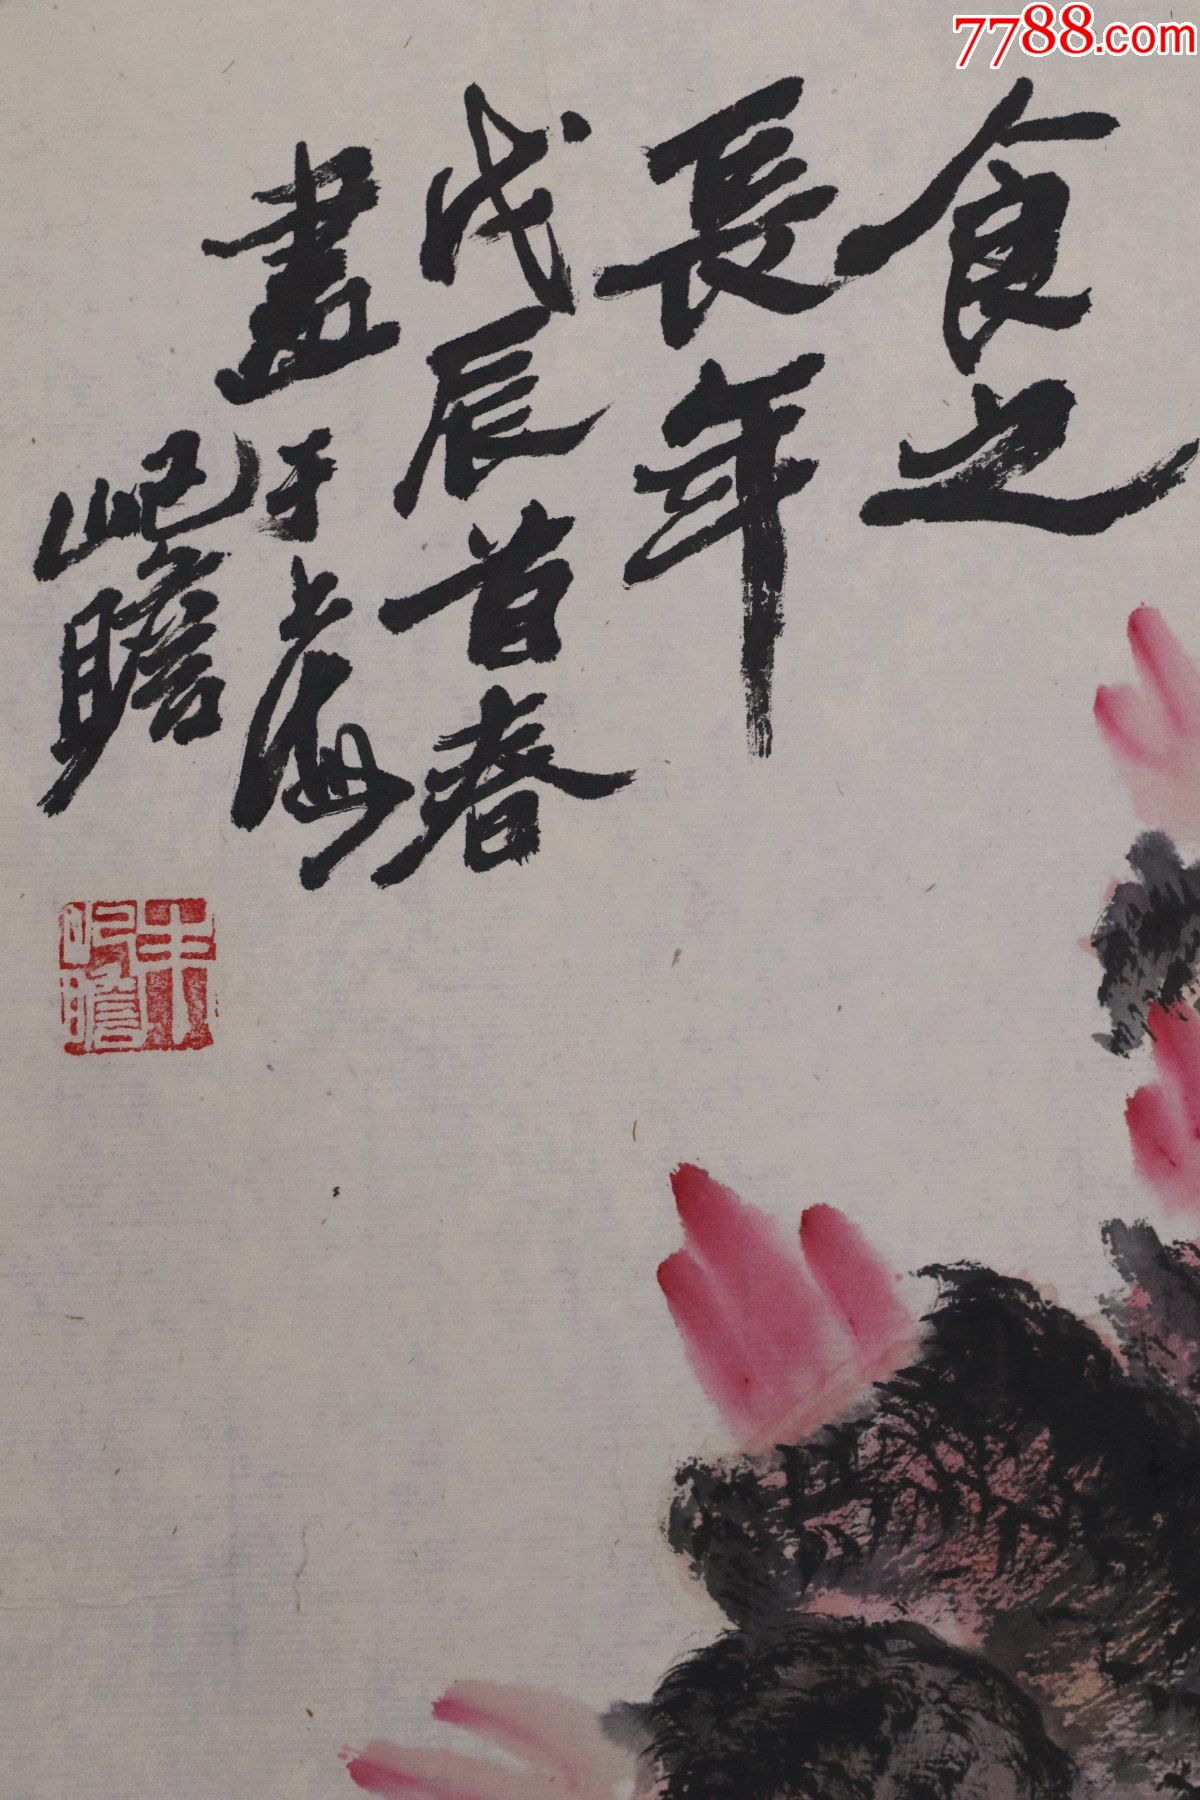 7788.com
食之
長年
戊辰首春
畫于上海
屺瞻
朱
屺瞻